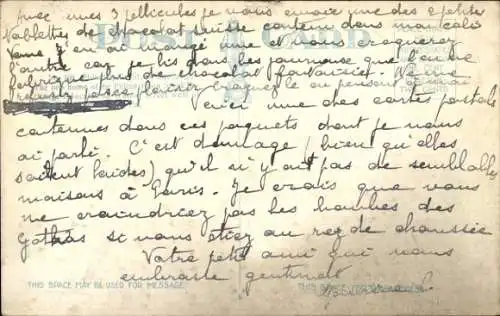 Avec mes 3 pellicules je vous envoie une des 2 petites
tablettes de chocolat suisse contenu dans mon colis
Vanne. J'en ai mangé une et vous croquerez
l'autre car je lis dans les journaux que l'on ne
fabrique plus de chocolat fantaisie.
plaisir Croquez le en pensant à moi
une des cartes postales
contenues dans ces paquets dont je vous
ai parlé. C'est dommage (bien qu'elles
soient laides) qu'il n'y ait pas de semblables
maisons à Paris. Je crois que vous
ne craindriez pas les bombes des
Gothas si vous étiez au rez de chaussée
Votre petit ami qui vous
embrasse gentiment
POST CARD
THIS SPACE MAY BE USED FOR MESSAGE